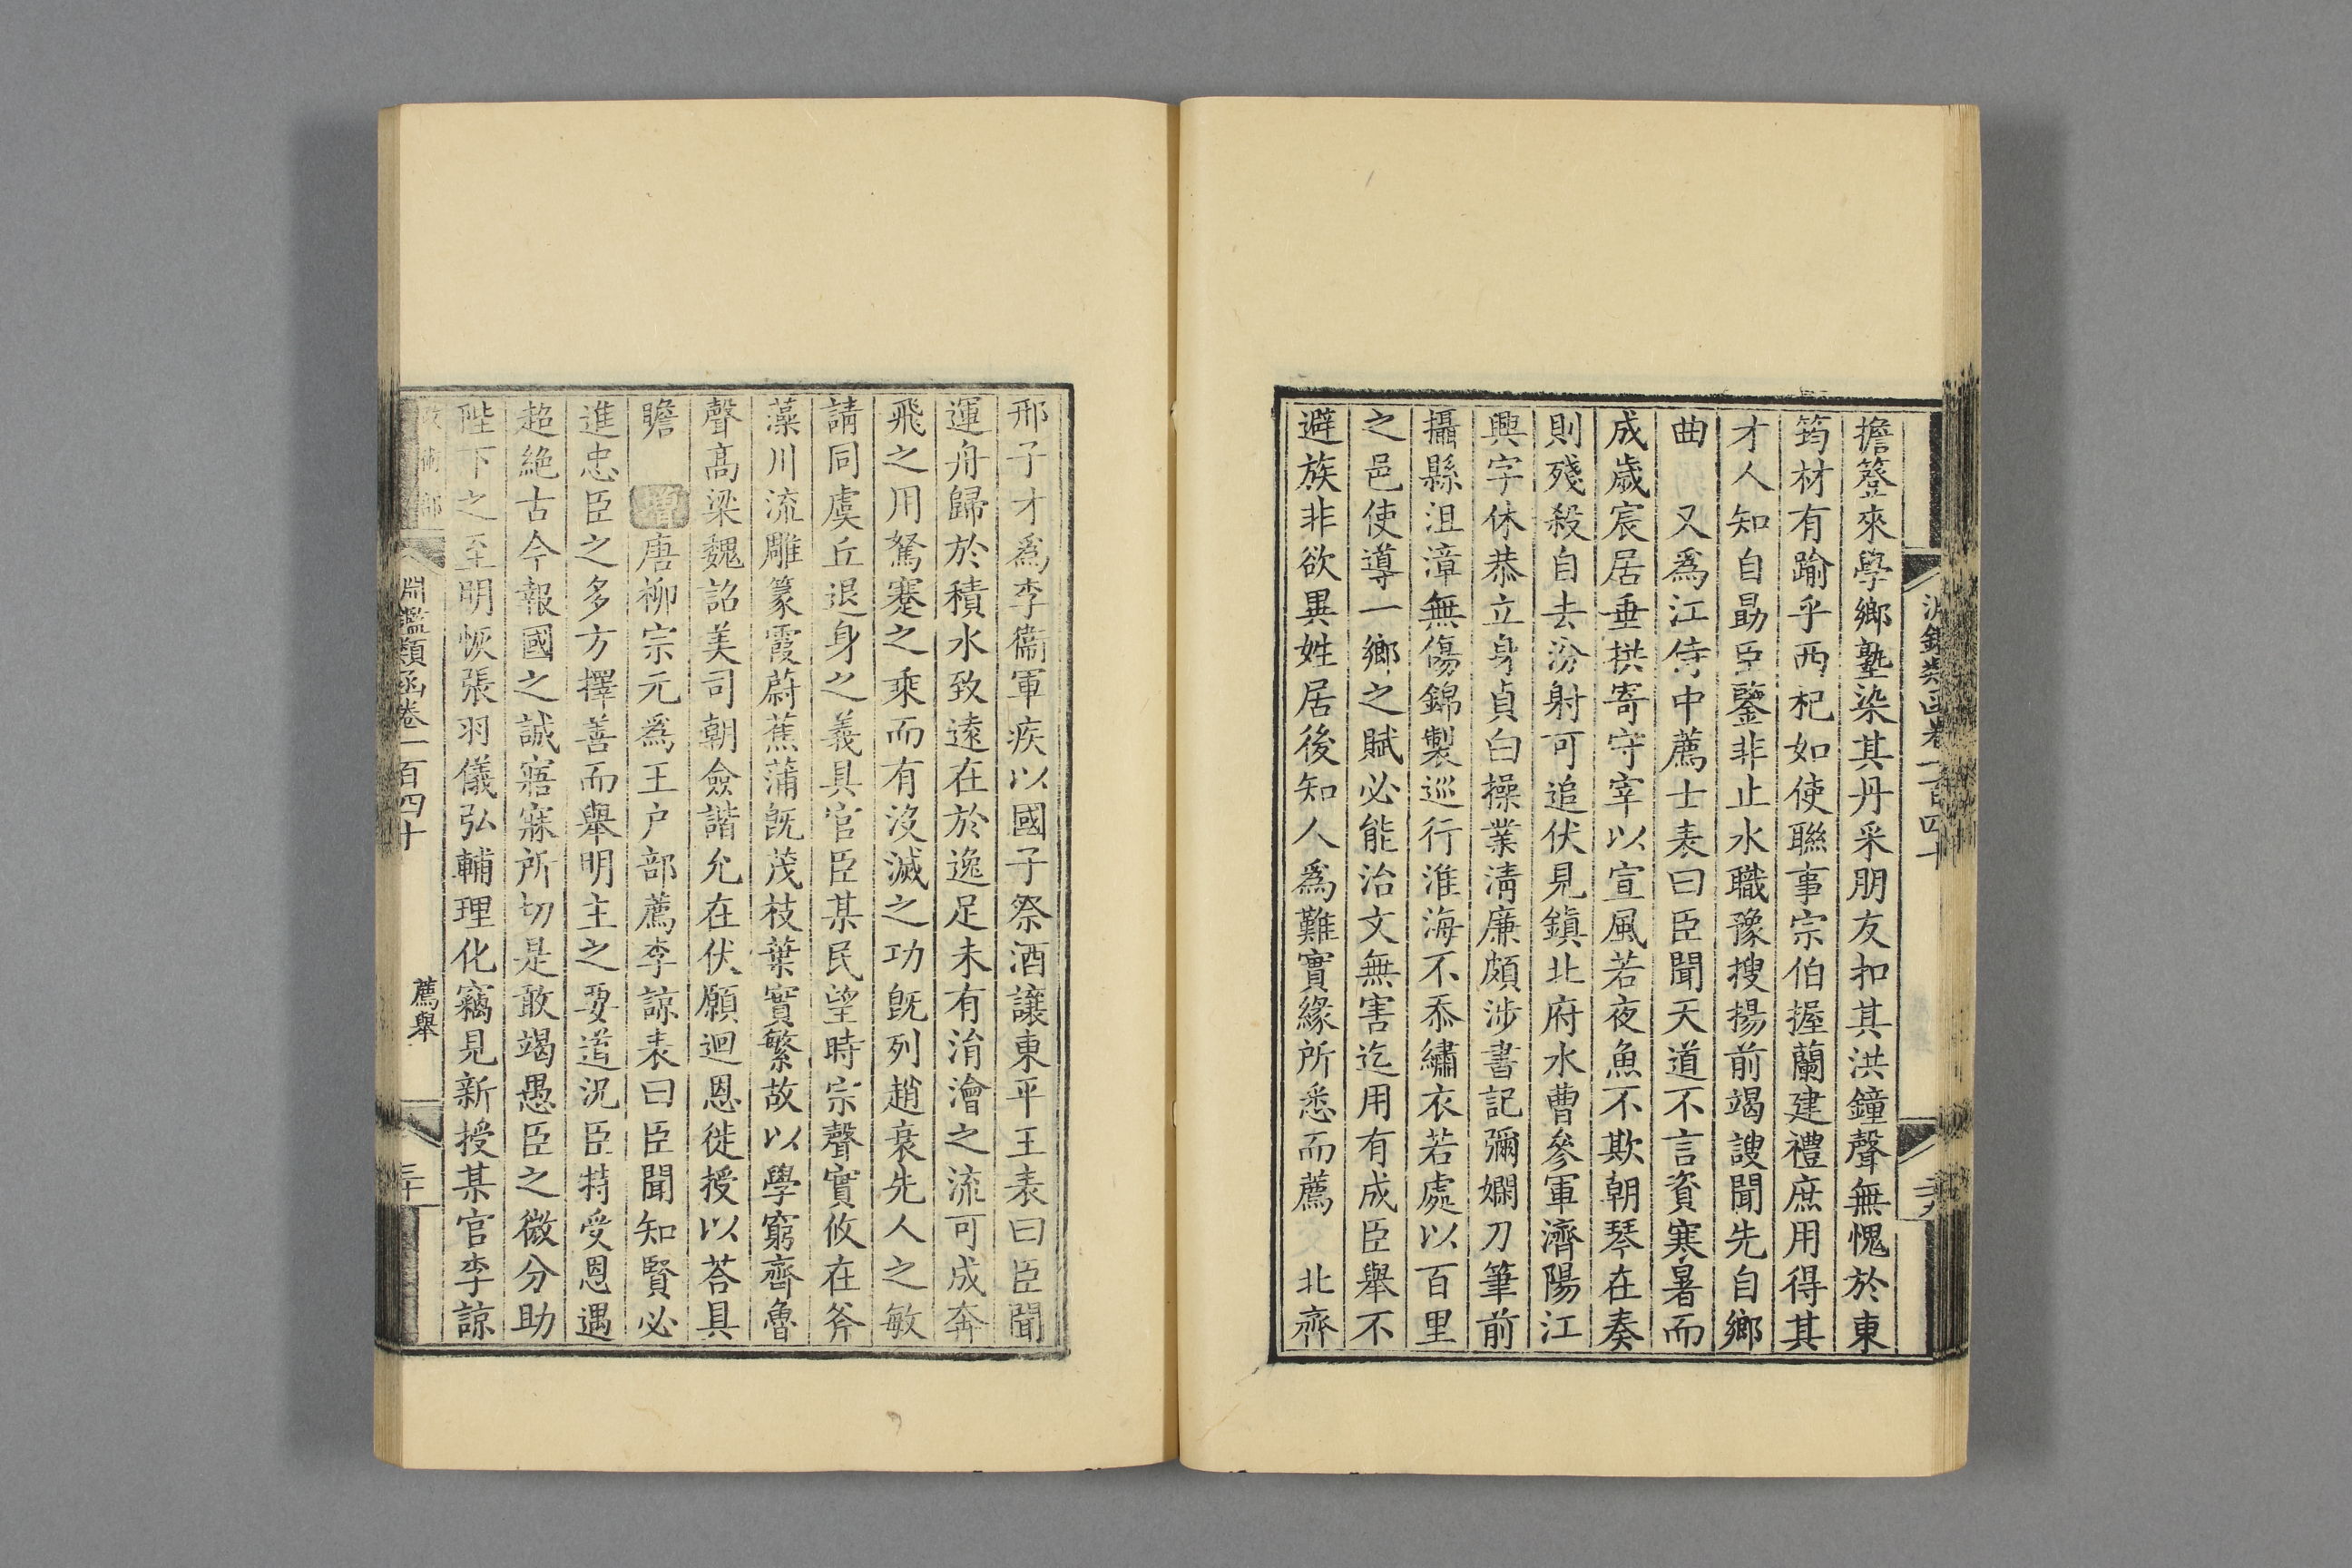 淵鑑類函卷一百四十
二十九
擔簦來學鄉塾染其丹采朋友扣其洪鐘聲無愧於東
筠材有踰乎西杞如使聯事宗伯握蘭建禮庶用得其
才人知自勗臣鑒非止水職豫搜揚前竭謏聞先自鄉
曲　又爲江侍中薦士表曰臣聞天道不言資寒暑而
成歲宸居垂拱寄守宰以宣風若夜魚不欺朝琴在奏
則殘殺自去汾射可追伏見鎮北府水曹參軍濟陽江
興字休恭立身貞白操業清廉頗涉書記彌嫻刀筆前
攝縣沮漳無傷錦製巡行淮海不忝繡衣若處以百里
之邑使導一鄉之賦必能治文無害迄用有成臣舉不
避族非欲異姓居後知人爲難實緣所悉而薦　北齊
邢子才爲李衞軍疾以國子祭酒讓東平王表曰臣聞
運舟歸於積水致遠在於逸足未有涓澮之流可成奔
飛之用駑蹇之乘而有沒滅之功旣列趙衰先人之敏
請同虞丘退身之義具官臣某民望時宗聲實攸在斧
藻川流雕篆霞蔚蕉蒲旣茂枝葉實繁故以學窮齊魯
聲高梁魏詔美司朝僉諧允在伏願迴恩徙授以荅具
瞻　增唐柳宗元爲王户部薦李諒表曰臣聞知賢必
進忠臣之多方擇善而舉明主之要道況臣特受恩遇
超絶古今報國之誠寤寐所切是敢竭愚臣之微分助
陛下之至明恢張羽儀弘輔理化竊見新授某官李諒
政術部
淵鑑類函卷一百四十
薦舉
三十